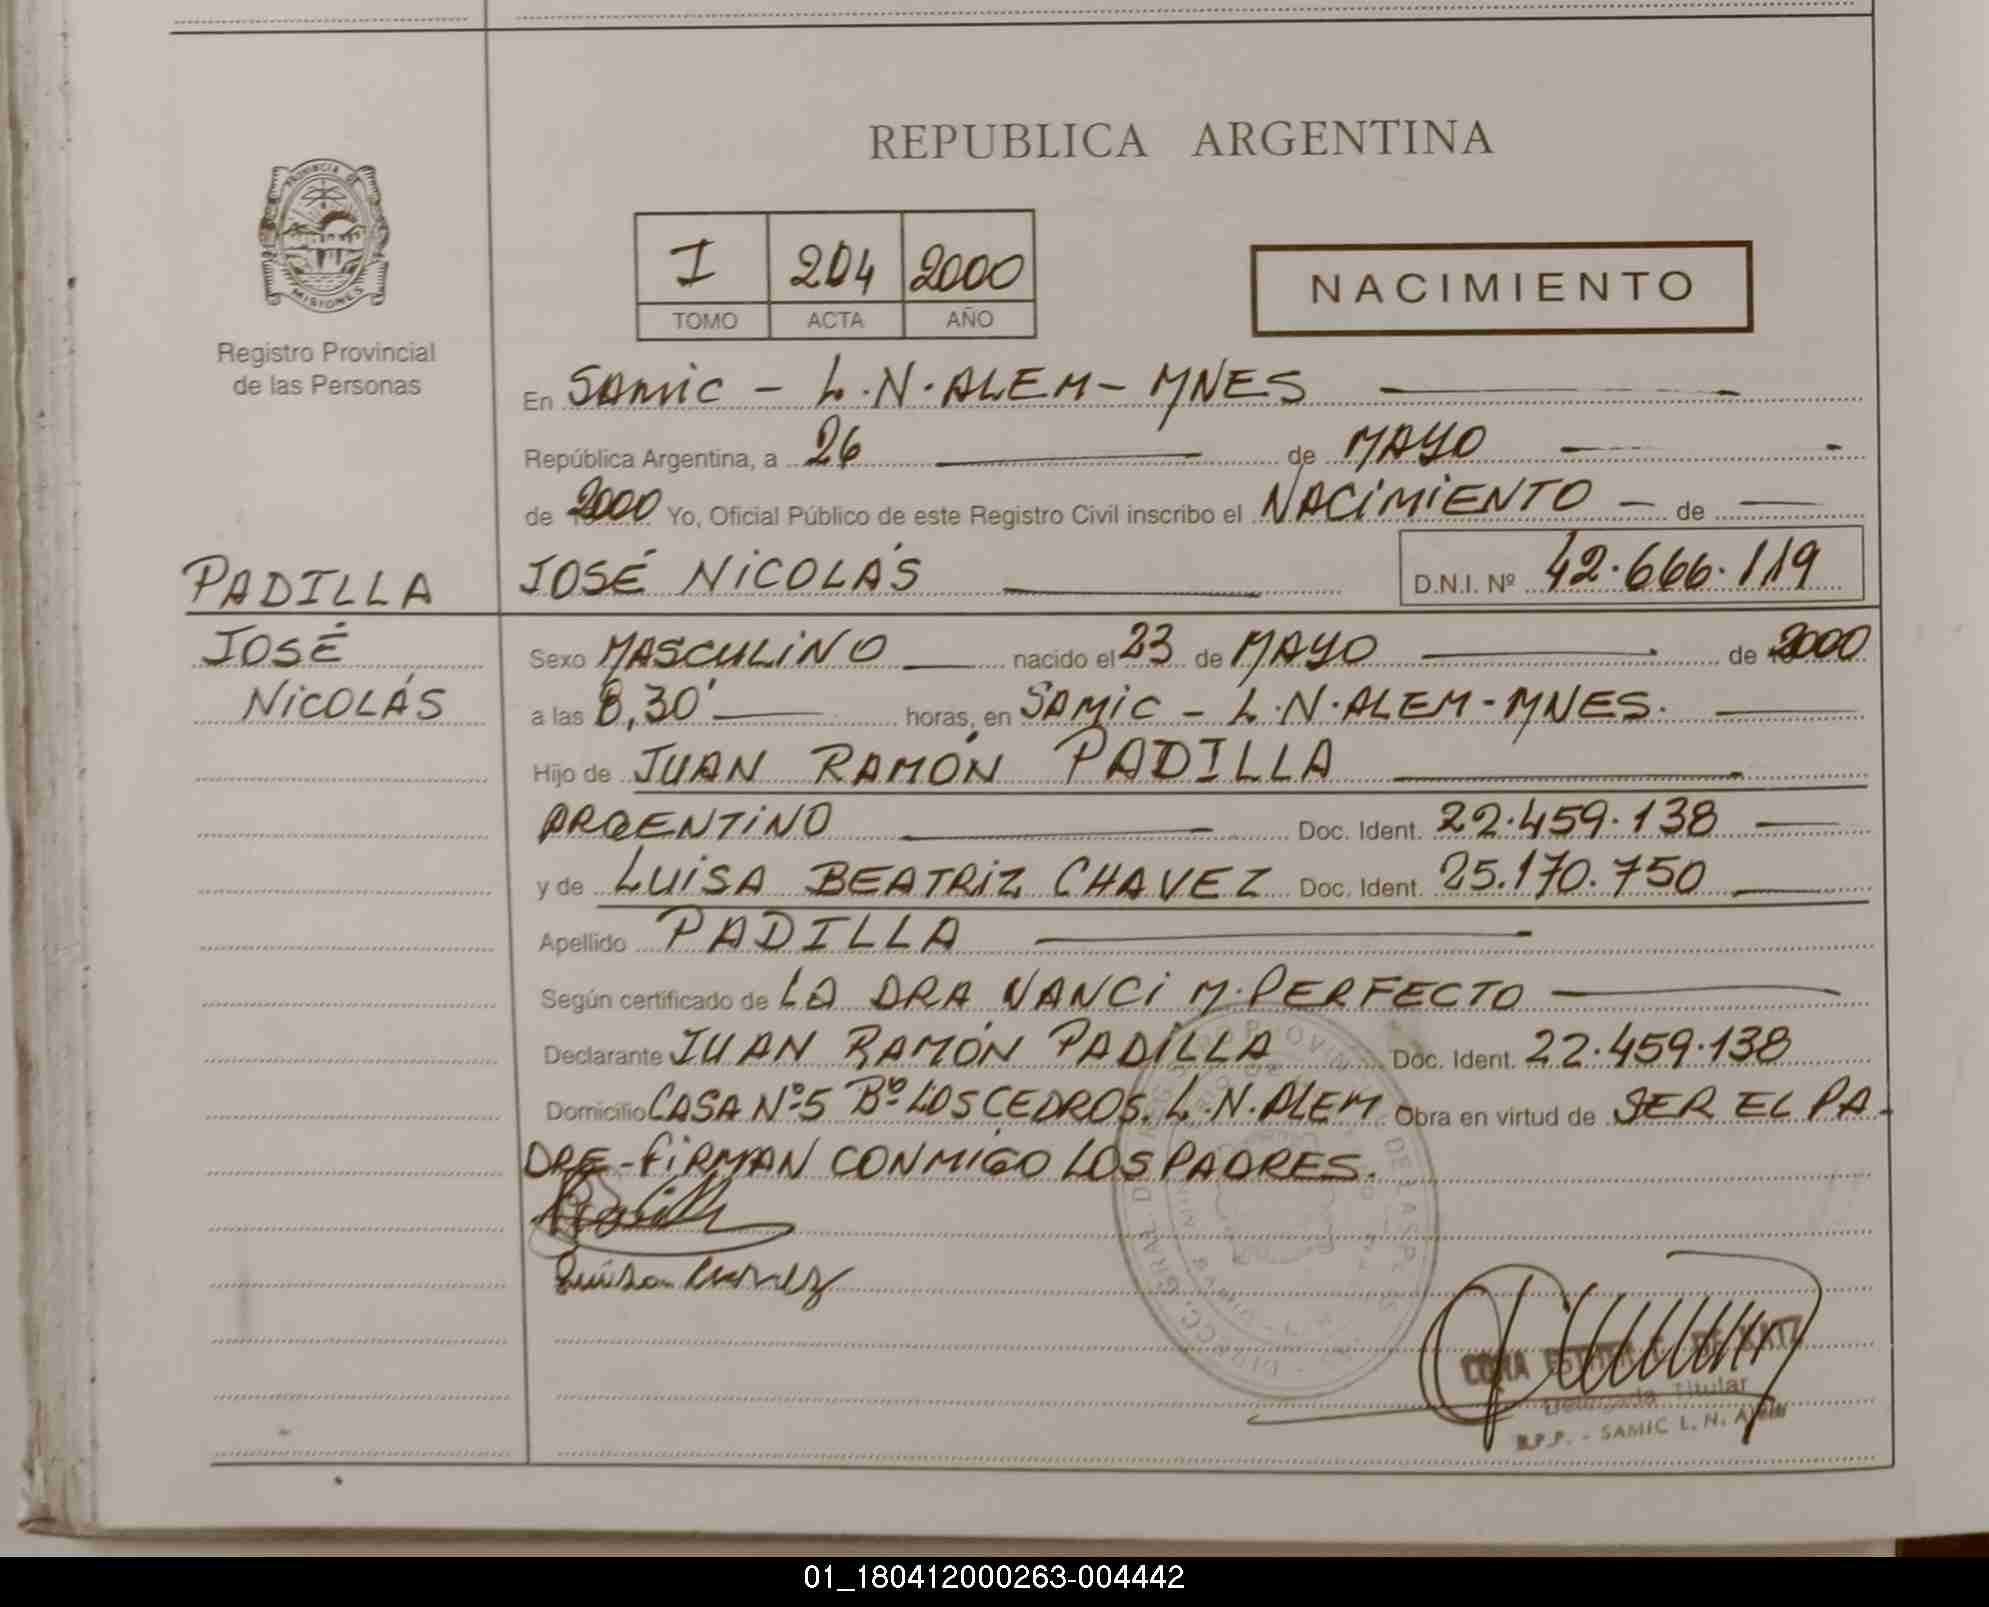 REPUBLICA ARGENTINA
PROVINCIA DE
MISIONES
Registro Provincial
de las Personas
I 204 2000
TOMO ACTA AÑO
NACIMIENTO
En SAMIC - L.N. ALEM - MNES
República Argentina, a 26 de MAYO
de 2000 Yo, Oficial Público de este Registro Civil inscribo el NACIMIENTO - de
JOSÉ NICOLÁS D.N.I. Nº 42.666.119
PADILLA
JOSÉ
NICOLÁS
Sexo MASCULINO nacido el 23 de MAYO de 2000
a las 8,30' horas, en SAMIC - L.N. ALEM - MNES.
Hijo de JUAN RAMÓN PADILLA
ARGENTINO Doc. Ident. 22.459.138
y de LUISA BEATRIZ CHAVEZ Doc. Ident. 25.170.750
Apellido PADILLA
Según certificado de LA DRA NANCI M. PERFECTO
Declarante JUAN RAMÓN PADILLA Doc. Ident. 22.459.138
Domicilio CASA Nº 5 Bº LOS CEDROS. L.N. ALEM Obra en virtud de SER EL PA-
DRE - FIRMAN CONMIGO LOS PADRES.
Delegada Titular
R.P.P. - SAMIC L. N. Alem
01_180412000263-004442